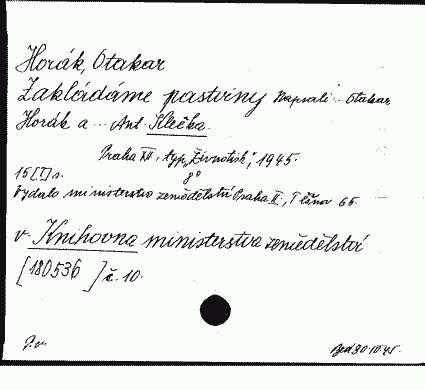 Horák, Otakar
Zakládáme pastviny Napsali... Otakar
Horák a... Ant. Klečka.
Praha XII, typ. „Živnotisk", 1945.
15 [1] s. 8°
Vydalo ministerstvo zemědělství Praha II, Těšnov 65
v Knihovna ministerstva zemědělství
[180536] č. 10.